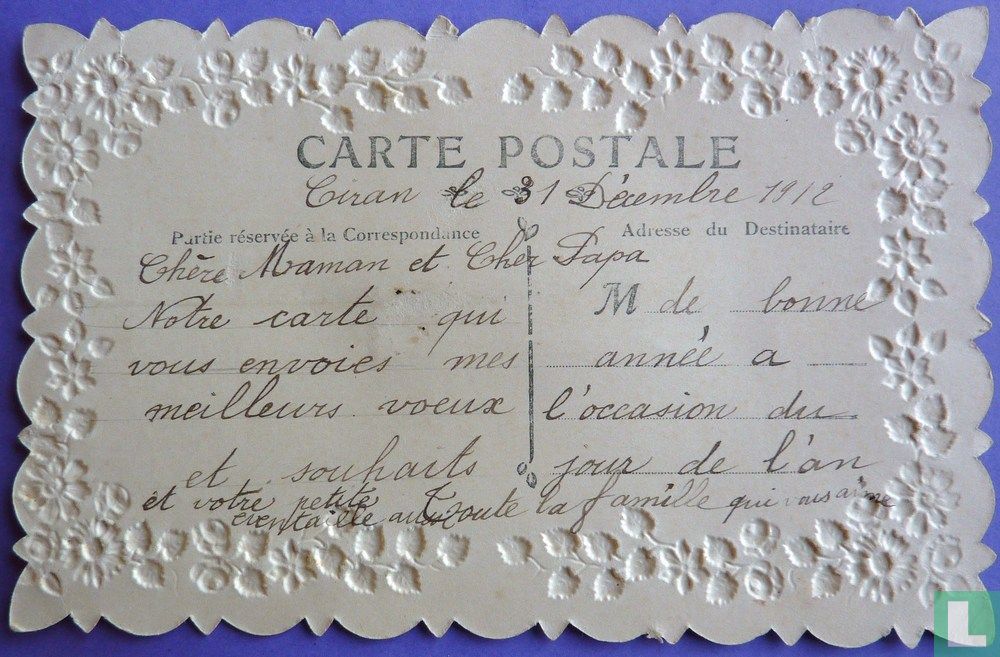 CARTE POSTALE
Ciran le 31 Décembre 1912
Partie réservée à la Correspondance
Adresse du Destinataire
Chère Maman et Cher Papa
Notre carte qui
vous envoies mes
meilleurs voeux
et souhaits
M de bonne
année a
l'occasion du
jour de l'an
et votre petite
Toute la famille qui vous aime
L